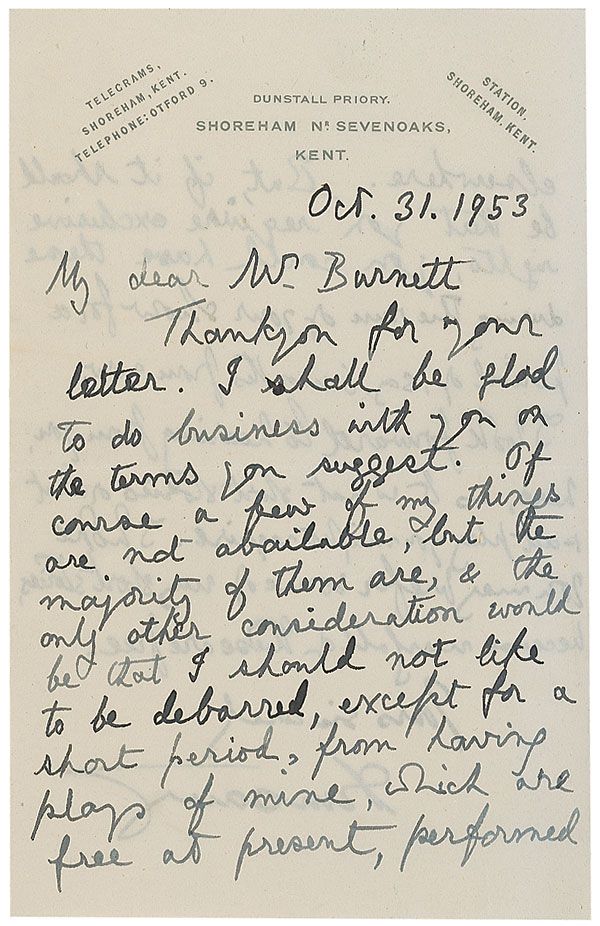 TELEGRAMS,
SHOREHAM, KENT.
TELEPHONE: OTFORD 9.
STATION.
SHOREHAM, KENT.
DUNSTALL PRIORY.
SHOREHAM Nᴿ SEVENOAKS,
KENT.
Oct. 31. 1953
My dear Mr Burnett
Thank you for your
letter. I shall be glad
to do business with you on
the terms you suggest. Of
course a few of my things
are not available, but the
majority of them are, & the
only other consideration would
be that I should not like
to be debarred, except for a
short period, from having
plays of mine, which are
free at present, performed